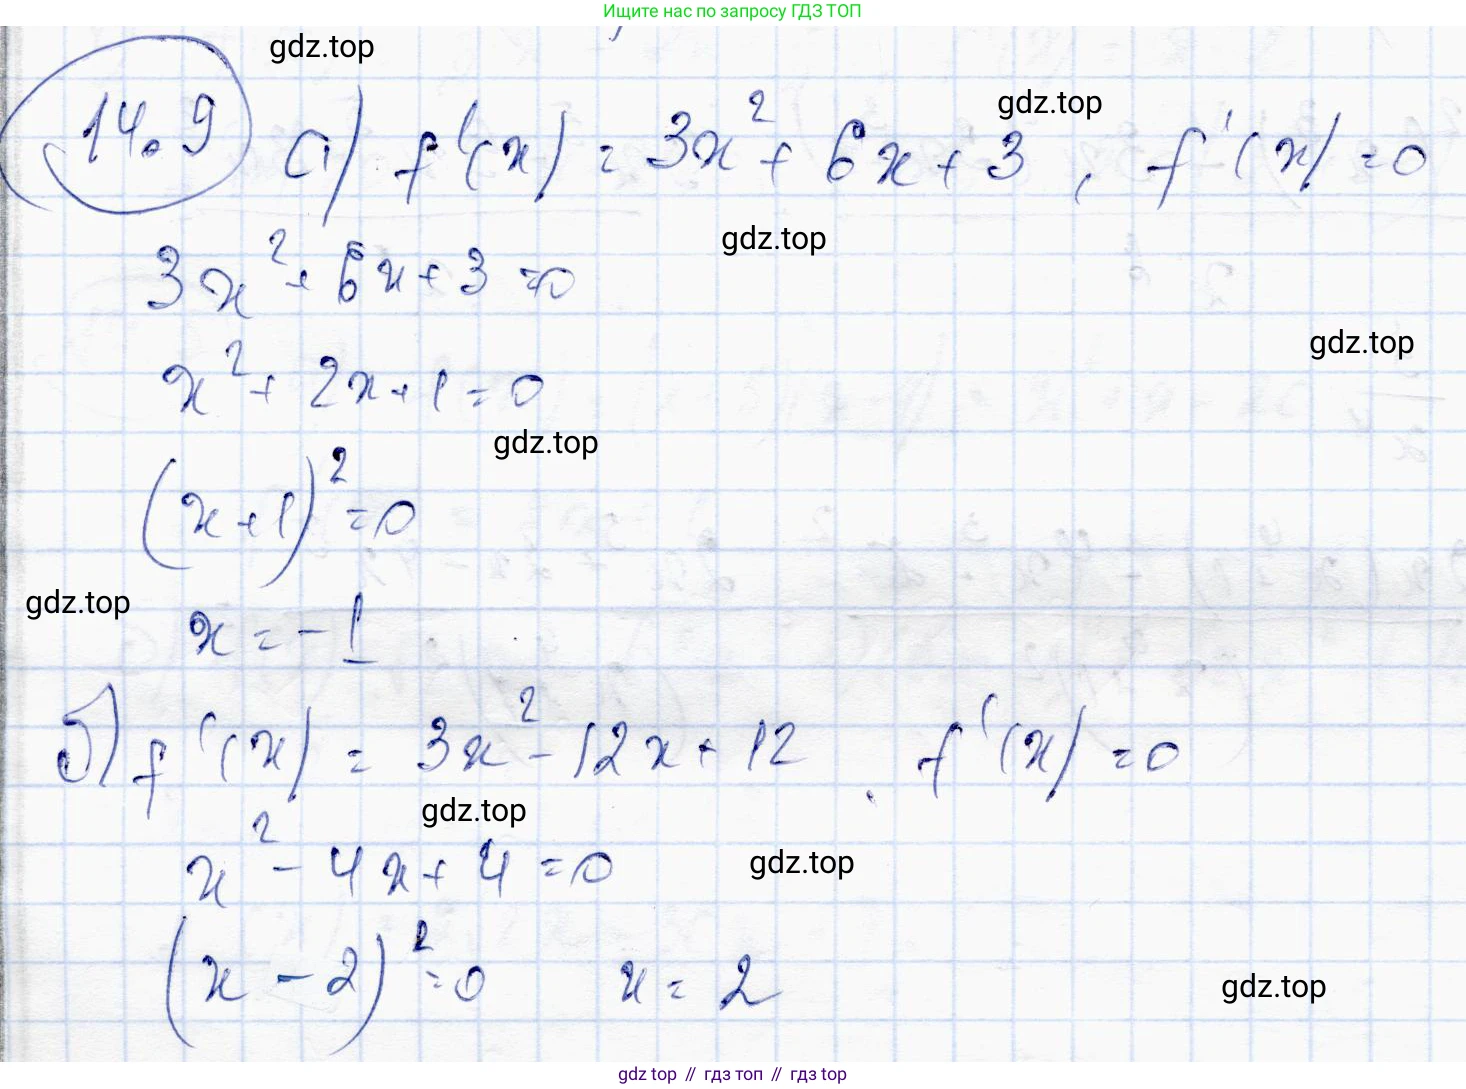 Ищите нас по запросу ГДЗ ТОП
gdz.top
gdz.top
14.9 а) f'(x) = 3x² + 6x + 3, f'(x) = 0
gdz.top
3x² + 6x + 3 = 0
gdz.top
x² + 2x + 1 = 0
gdz.top
(x + 1)² = 0
gdz.top
x = -1
б) f'(x) = 3x² - 12x + 12, f'(x) = 0
gdz.top
x² - 4x + 4 = 0
gdz.top
(x - 2)² = 0 x = 2
gdz.top
gdz top // гдз топ // gdz top